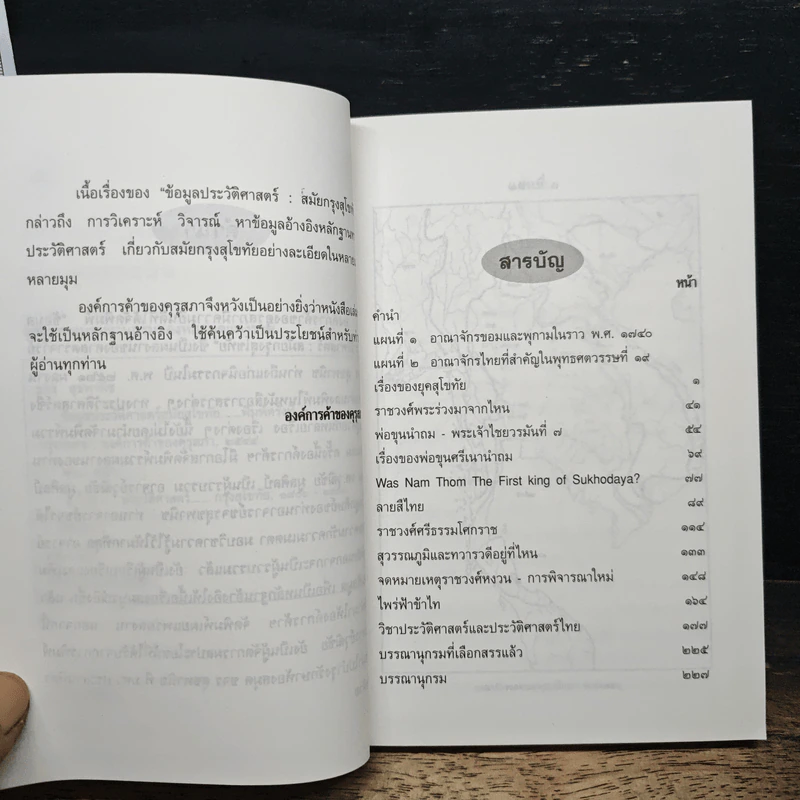 เนื้อเรื่องของ "ข้อมูลประวัติศาสตร์ : สมัยกรุงสุโขทัย
กล่าวถึง การวิเคราะห์ วิจารณ์ หาข้อมูลอ้างอิงหลักฐาน
ประวัติศาสตร์ เกี่ยวกับสมัยกรุงสุโขทัยอย่างละเอียดในหลาย
หลายมุม
องค์การค้าของคุรุสภาจึงหวังเป็นอย่างยิ่งว่าหนังสือเล่ม
จะใช้เป็นหลักฐานอ้างอิง ใช้ค้นคว้าเป็นประโยชน์สำหรับ
ผู้อ่านทุกท่าน
องค์การค้าของคุรุส
สารบัญ
หน้า
คำนำ
แผนที่ ๑ อาณาจักรขอมและพุกามในราว พ.ศ. ๑๗๔๐
แผนที่ ๒ อาณาจักรไทยที่สำคัญในพุทธศตวรรษที่ ๑๙
เรื่องของยุคสุโขทัย ๑
ราชวงศ์พระร่วงมาจากไหน ๔๑
พ่อขุนนำถม - พระเจ้าไชยวรมันที่ ๗ ๕๔
เรื่องของพ่อขุนศรีเนานำถม ๖๙
Was Nam Thom The First king of Sukhodaya? ๗๗
ลายสือไทย ๘๙
ราชวงศ์ศรีธรรมโศกราช ๑๑๔
สุวรรณภูมิและทวารวดีอยู่ที่ไหน ๑๓๓
จดหมายเหตุราชวงศ์หงวน - การพิจารณาใหม่ ๑๔๘
ไพร่ฟ้าข้าไท ๑๖๔
วิชาประวัติศาสตร์และประวัติศาสตร์ไทย ๑๗๗
บรรณานุกรมที่เลือกสรรแล้ว ๒๒๕
บรรณานุกรม ๒๒๗